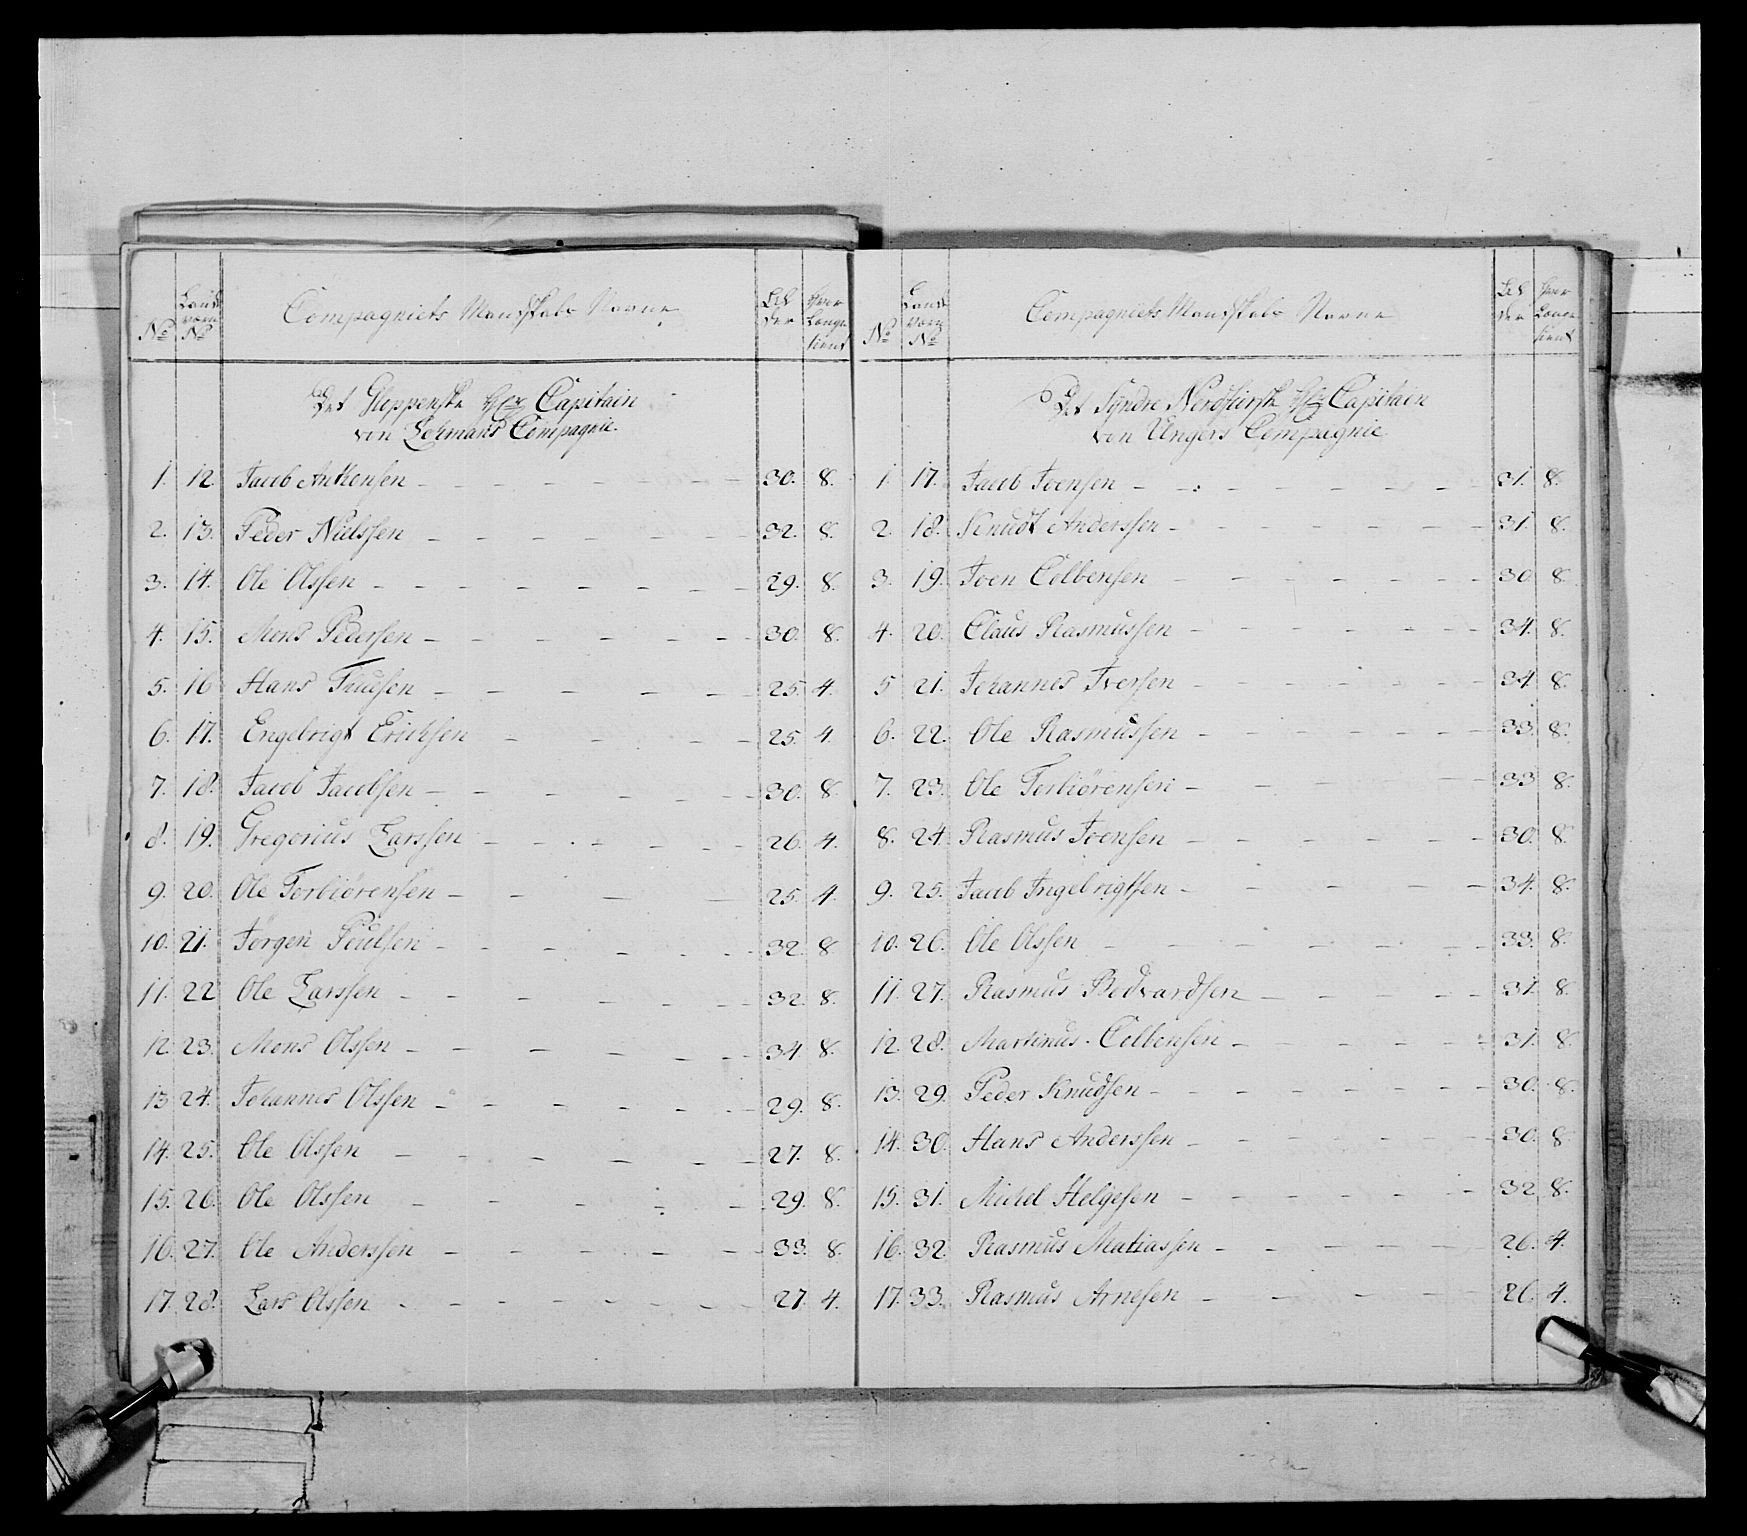 No
Land
værn
No
Compagniets Mandskabs Navne
Al
der
Hvor
Længe
tient
Det Gloppenske Hr Capitain
von Lehmans Compagnie.
1. 12 Jacob Anthonsen 30. 8.
2. 13. Peder Nielssen 32. 8.
3. 14. Ole Olssen 29. 8.
4. 15. Mons Pederssen 30. 8.
5. 16 Hans Knudsen 25. 4.
6. 17. Engebrigt Erichsen 25. 4.
7. 18. Jacob Jacobsen 30. 8.
8. 19. Gregorius Larssen 26. 4.
9. 20. Ole Torbiörensen 25. 4.
10. 21. Jörgen Poulsen 32. 8
11. 22 Ole Larssen 32. 8.
12. 23. Mons Olssen 34 8.
13 24. Johannes Olssen 29. 8.
14. 25. Ole Olssen 27. 8.
15. 26. Ole Olssen 29. 8.
16. 27. Ole Anderssen 33. 8.
17. 28. Lars Olssen 27. 4.
No
Land
værn
No
Compagniets Mandskabs Navne
Al
der
Hvor
Længe
tient
Det Syndre Nordfiorske Hr Capitain
von Ungers Compagnie
1. 17. Jacob Joensen 31. 8.
2. 18. Knudt Anderssen 31. 8.
3. 19. Joen Colbensen 30. 8.
4. 20. Claus Rasmussen 34. 8.
5 21. Johannes Iversen 34. 8.
6. 22. Ole Rasmussen 33. 8.
7. 23. Ole Torbiörensen 33 8.
8. 24. Rasmus Joensen 30. 8.
9. 25. Jacob Ingebrigtsen 34. 8.
10. 26. Ole Olssen 33. 8.
11. 27. Rasmus Bodvardsen 31. 8.
12. 28. Martinus Colbensen 31. 8.
13. 29. Peder Knudsen 30. 8.
14. 30. Hans Anderssen 30. 8.
15. 31. Michel Helgesen 32 8.
16. 32. Rasmus Matiassen 26. 4.
17. 33. Rasmus Arnesen 26. 4.